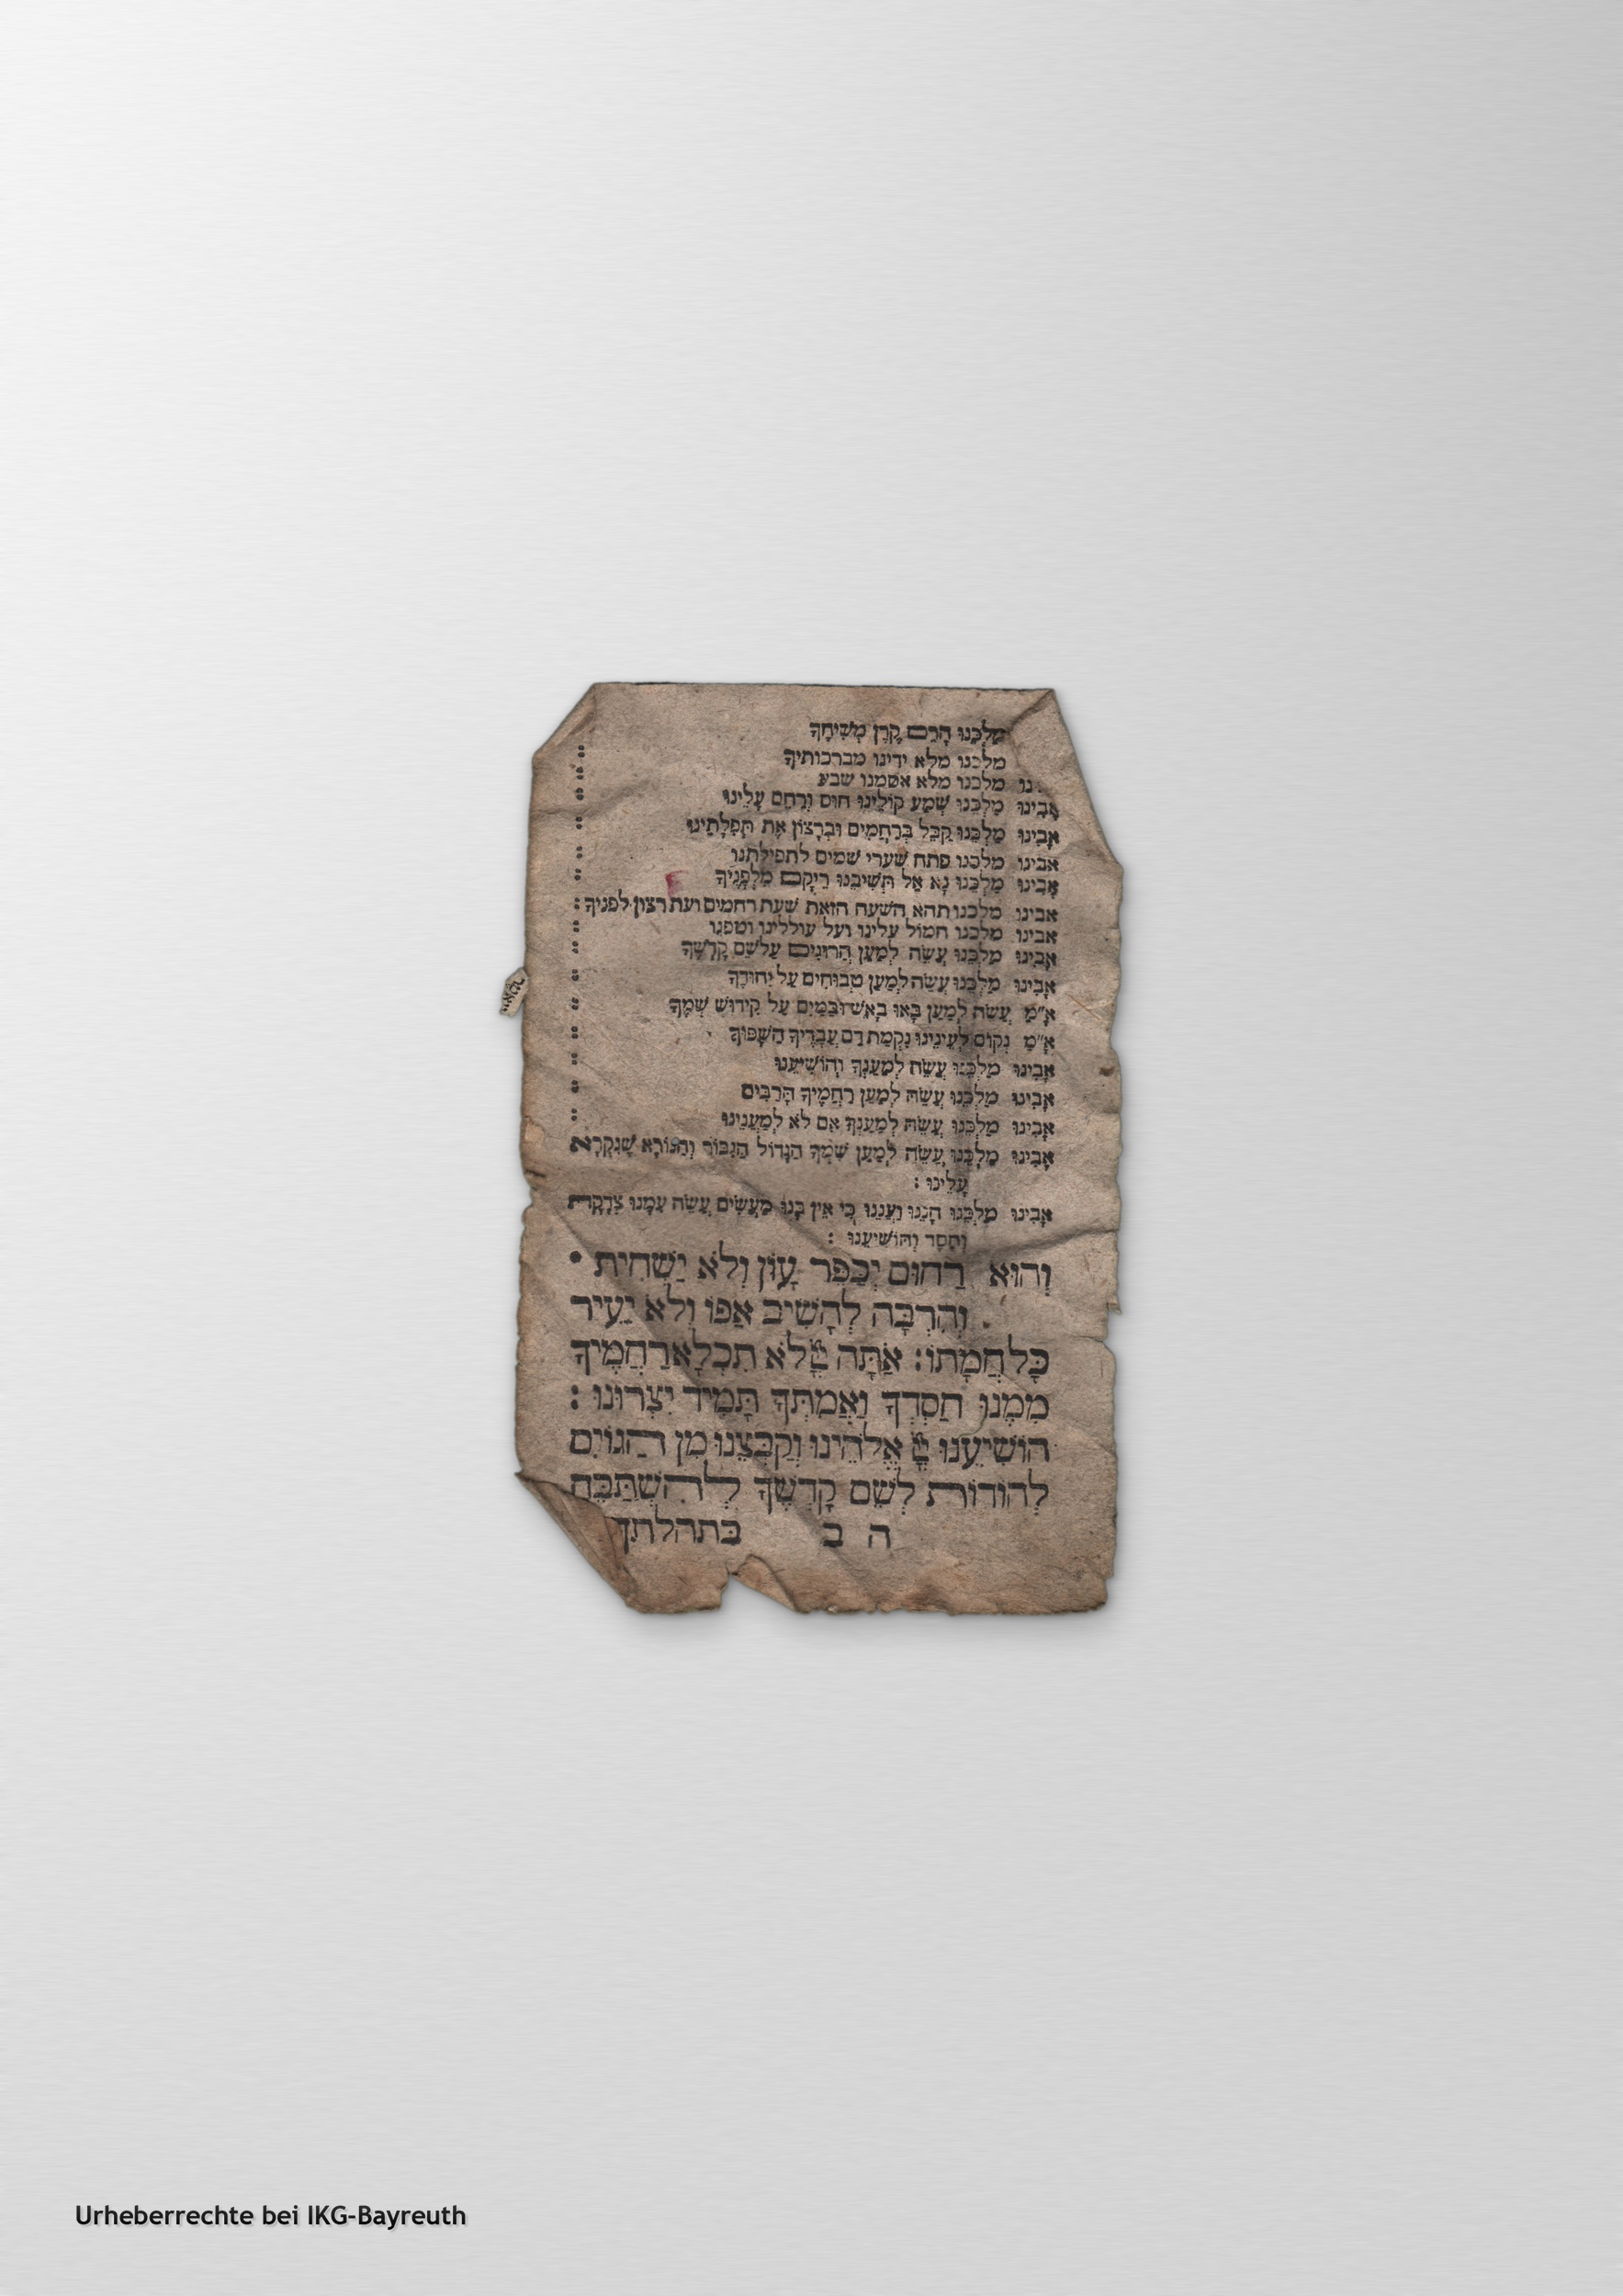 מַלְכֵּנוּ הָרֵם קֶרֶן מְשִׁיחֶךָ
מלכנו מלא ידינו מברכותיך :
נו מלכנו מלא אסמנו שבע :
אָבִינוּ מַלְכֵּנוּ שְׁמַע קוֹלֵינוּ חוּס וְרַחֵם עָלֵינוּ :
אָבִינוּ מַלְכֵּנוּ קַבֵּל בְּרַחֲמִים וּבְרָצוֹן אֶת תְּפִלָּתֵינוּ :
אבינו מלכנו פתח שערי שמים לתפילתנו :
אָבִינוּ מַלְכֵּנוּ נָא אַל תְּשִׁיבֵנוּ רֵיקָם מִלְּפָנֶיךָ :
אבינו מלכנו תהא השעה הזאת שעת רחמים ועת רצון לפניך :
אבינו מלכנו חמול עלינו ועל עוללינו וטפנו :
אָבִינוּ מַלְכֵּנוּ עֲשֵׂה לְמַעַן הֲרוּגִים עַל שֵׁם קָדְשֶׁךָ :
אָבִינוּ מַלְכֵּנוּ עֲשֵׂה לְמַעַן טְבוּחִים עַל יִחוּדֶךָ :
אָ״מַ עֲשֵׂה לְמַעַן בָּאוּ בָאֵשׁ וּבַמַּיִם עַל קִידּוּשׁ שְׁמֶךָ :
אָ״מַ נְקוֹם לְעֵינֵינוּ נִקְמַת דַּם עֲבָדֶיךָ הַשָּׁפוּךְ :
אָבִינוּ מַלְכֵּנוּ עֲשֵׂה לְמַעַנְךָ וְהוֹשִׁיעֵנוּ :
אָבִינוּ מַלְכֵּנוּ עֲשֵׂה לְמַעַן רַחֲמֶיךָ הָרַבִּים :
אָבִינוּ מַלְכֵּנוּ עֲשֵׂה לְמַעַנְךָ אִם לֹא לְמַעֲנֵינוּ :
אָבִינוּ מַלְכֵּנוּ עֲשֵׂה לְמַעַן שִׁמְךָ הַגָּדוֹל הַגִּבּוֹר וְהַנּוֹרָא שֶׁנִּקְרָא
עָלֵינוּ :
אָבִינוּ מַלְכֵּנוּ חָנֵּנוּ וַעֲנֵנוּ כִּי אֵין בָּנוּ מַעֲשִׂים עֲשֵׂה עִמָּנוּ צְדָקָה
וָחֶסֶד וְהוֹשִׁיעֵנוּ :
וְהוּא רַחוּם יְכַפֵּר עָוֹן וְלֹא יַשְׁחִית •
וְהִרְבָּה לְהָשִׁיב אַפּוֹ וְלֹא יָעִיר
כָּל חֲמָתוֹ: אַתָּה לֹא תִכְלָא רַחֲמֶיךָ
מִמֶּנּוּ חַסְדְּךָ וַאֲמִתְּךָ תָּמִיד יִצְּרוּנוּ :
הוֹשִׁיעֵנוּ אֱלֹהֵינוּ וְקַבְּצֵנוּ מִן הַגּוֹיִם
לְהוֹדוֹת לְשֵׁם קָדְשֶׁךָ לְהִשְׁתַּבֵּחַ
ה ב בתהלתך
Urheberrechte bei IKG-Bayreuth